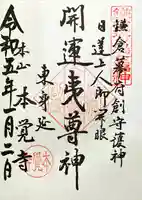 鎌倉幕府創守護神
日道上人御開眼
開運夷尊神
東身延
本山本覚寺
令和五年一月二日